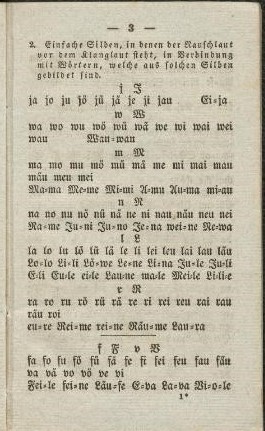 — 3 —
2. Einfache Silben, in denen der Rauschlaut
vor dem Klanglaut steht, in Verbindung
mit Wörtern, welche aus solchen Silben
gebildet sind.
j J
ja jo ju jö jü jä je ji jau Ei⸗ja
w W
wa wo wu wö wü wä we wi wai wei
wau Wau⸗wau
m M
ma mo mu mö mü mä me mi mai mau
mäu meu mei
Ma⸗ma Me⸗me Mi⸗mi A⸗mu Au⸗ma mi⸗au
n N
na no nu nö nü nä ne ni nau näu neu nei
Na⸗me Ju⸗ni Ju⸗no Je⸗na wei⸗ne Ne⸗wa
l L
la lo lu lö lü lä le li lei leu lai lau läu
Lo⸗lo Li⸗li Lö⸗we Le⸗ne Li⸗na Ju⸗le Ju⸗li
E⸗li Eu⸗le ei⸗le Lau⸗ne ma⸗le Mei⸗le Li⸗li⸗e
r R
ra ro ru rö rü rä re ri rei reu rai rau
räu roi
eu⸗re Rei⸗me rei⸗ne Räu⸗me Lau⸗ra
f F v V
fa fo fu fö fü fä fe fi fei feu fau fäu
va vä vo vö ve vi
Fei⸗le fei⸗ne Läu⸗fe E⸗va La⸗va Vi⸗o⸗le
1*